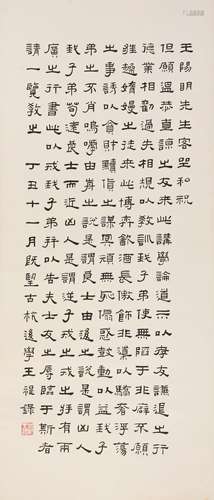 王陽明先生客坐私祝
但願溫恭直諒之友來此講學論道示以孝友謙退之行
德業相勸過失相規以教訓我子弟使無陷于非辟不願
狂趮媠嫚之徒來此博弈飲酒長傲飾非導以驕奢淫蕩
之事誘以貪財黷貨之謀冥頑無恥扇惑鼓動以益我子
弟之不肖嗚嘑由前之說是謂良士由後之說是謂凶人
我子弟苟遠良士而近凶人是謂逆子戒之戒之將有兩
廣之行書此以戒我子弟并以告夫士友之辱臨于斯者
請一覽教之 丁丑十一月既望古杭後學王禔錄